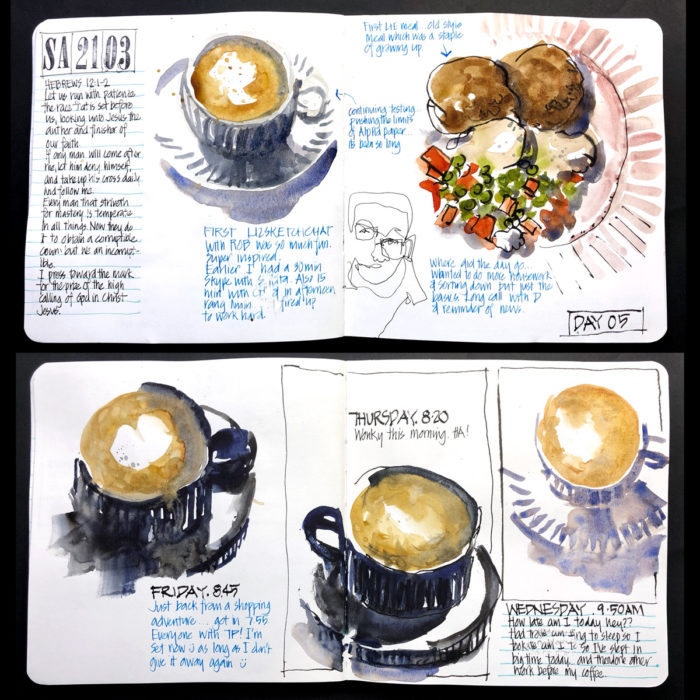 SA 21 03
HEBREWS 12:1-2
Let us run with patience
the race that is set before
us, looking unto Jesus the
author and finisher of
our faith
If any man will come after
me, let him deny himself,
and take up his cross daily
and follow me.
Every man that striveth
for mastery is temperate
in all things. Now they do
it to obtain a corruptible
crown: but we an incorrupt-
ible.
I press toward the mark
for the prize of the high
calling of God in Christ
Jesus.
FIRST LIZSKETCHCHAT
with ROB was so much fun.
Super inspired.
Earlier I had a 30 min
Skype with
him with in afternoon
rang Mum fired up
to work hard.
First LIE meal... old style
Meal which was a staple
of growing up.
continuing testing...
pushing the limits
of Alpha paper...
is been so long
Where did the day go...
Wanted to do more housework
& sorting down but just the
basics. Long call with D
& reminder of news.
DAY 05
FRIDAY. 8.45
Just back from a shopping
adventure.... got in 7.55
Everyone with TP! I'm
set now as long as I don't
give it away again
THURSDAY. 8:20
Wonky this morning. HA!
WEDNESDAY. 9.50AM
How late am I today hey??
Had to sleep so I
took so I've slept in
big time today... and therefore other
work before my coffee.